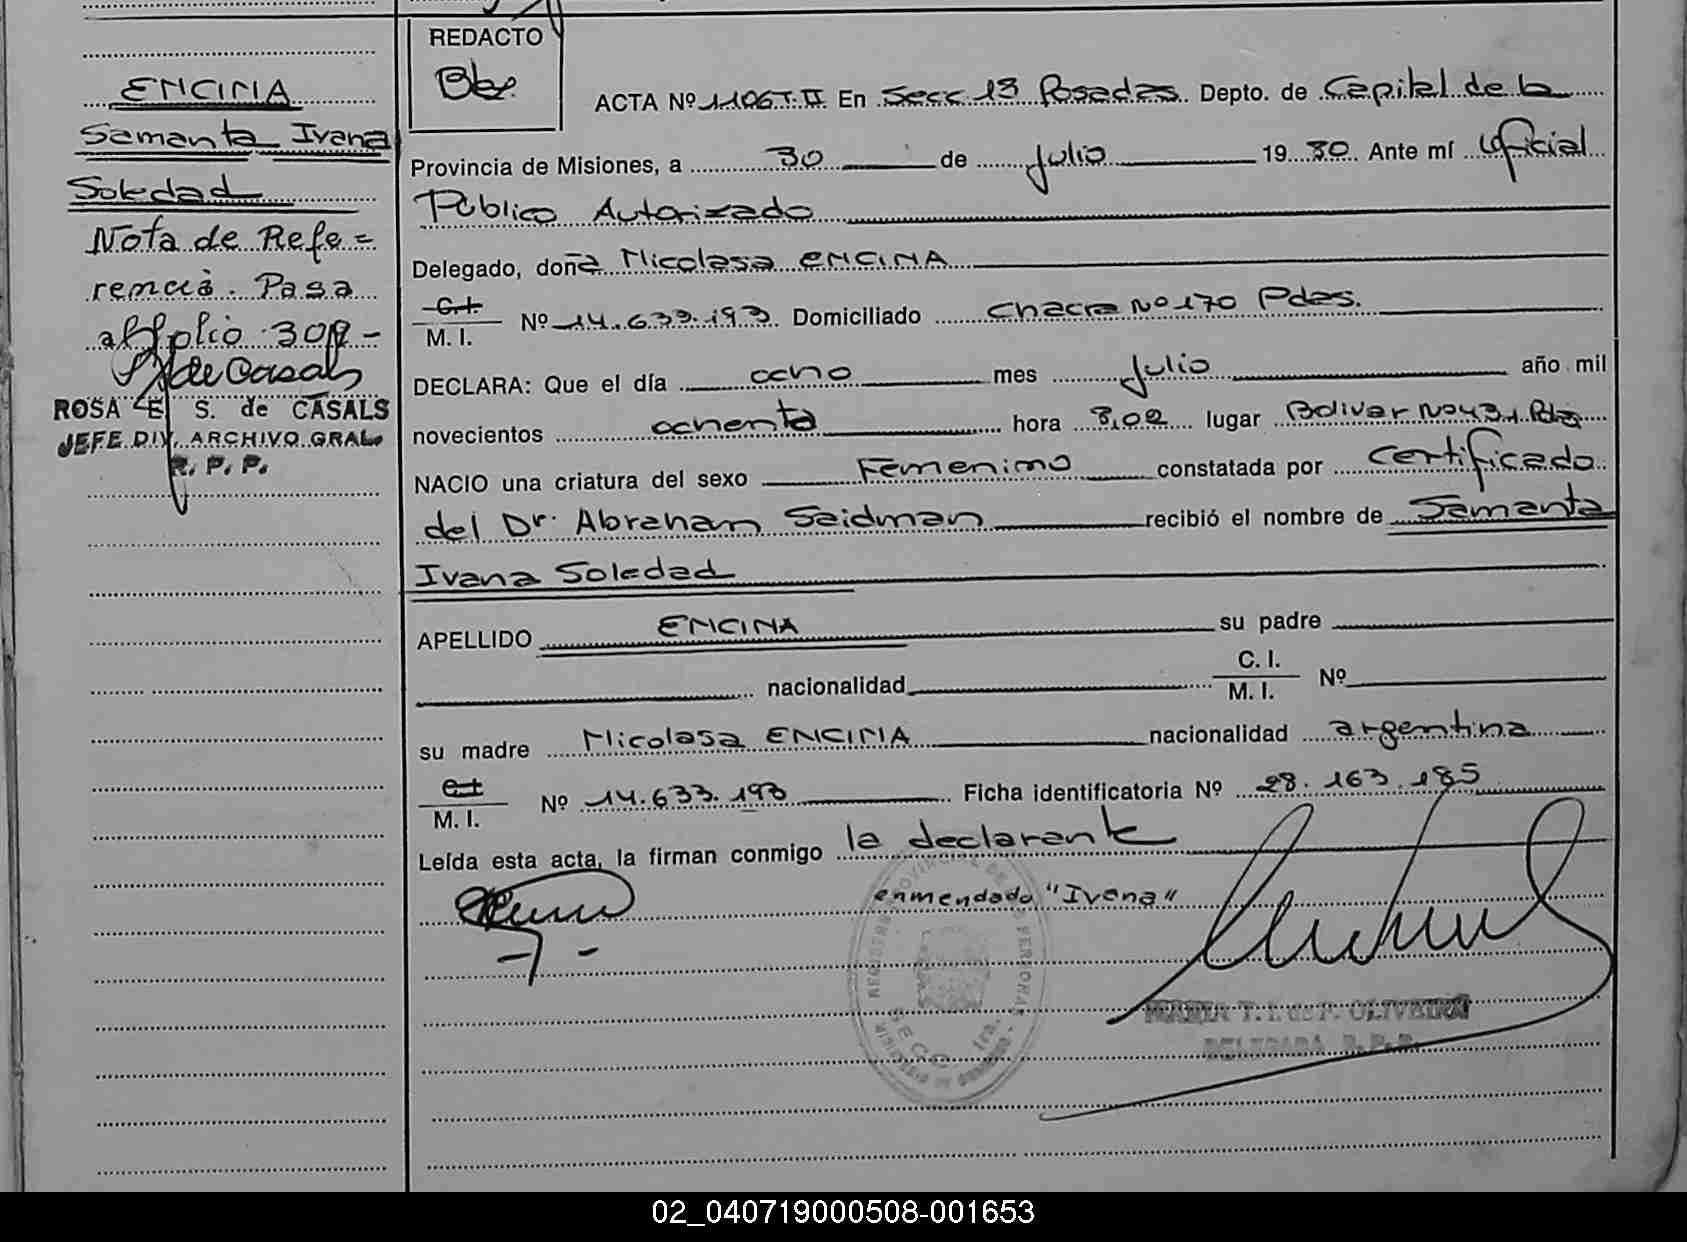 REDACTO
ENCINA
Samanta Ivana
Soledad
Nota de Refe=
rencia. Pasa
al folio 309-
ROSA E. S. de CASALS
JEFE DIV. ARCHIVO GRAL.
R. P. P.
ACTA Nº 1106 T. II En Secc 1ª Posadas Depto. de Capital de la
Provincia de Misiones, a 30 de Julio 19 80 Ante mí Oficial
Público Autorizado
Delegado, doña Nicolasa ENCINA
C.I.
M. I. Nº 14.633.193 Domiciliado Chacra Nº 170 Pdas.
DECLARA: Que el día ocho mes Julio año mil
novecientos ochenta hora 3,02 lugar Bolivar Nº 431 Pdas
NACIO una criatura del sexo Femenino constatada por certificado
del Dr. Abraham Saidman recibió el nombre de Samanta
Ivana Soledad
APELLIDO ENCINA su padre
nacionalidad C. I.
M. I. Nº
su madre Nicolasa ENCINA nacionalidad argentina
C.I.
M. I. Nº 14.633.193 Ficha identificatoria Nº 28.163.185
Leída esta acta, la firman conmigo la declarante
enmendado "Ivana"
OLIVEIRA
DELEGADA R. P. P.
02_040719000508-001653